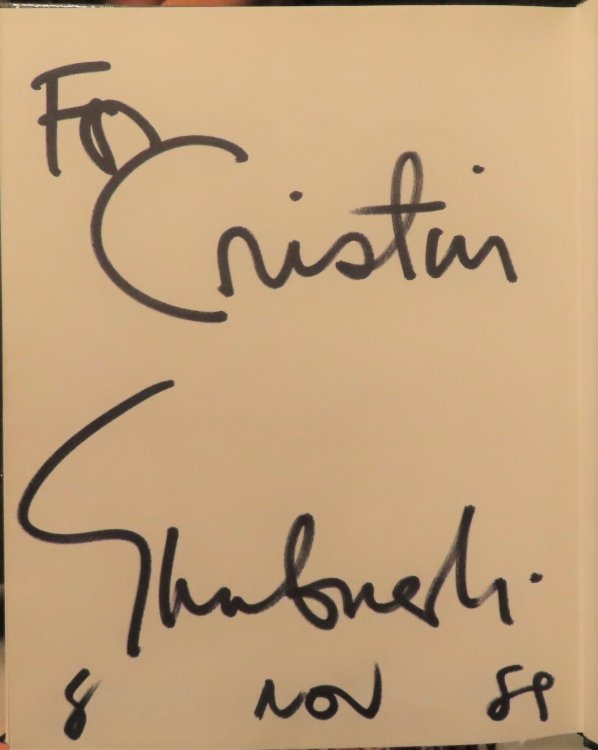 For
Cristin
8 NOV 89